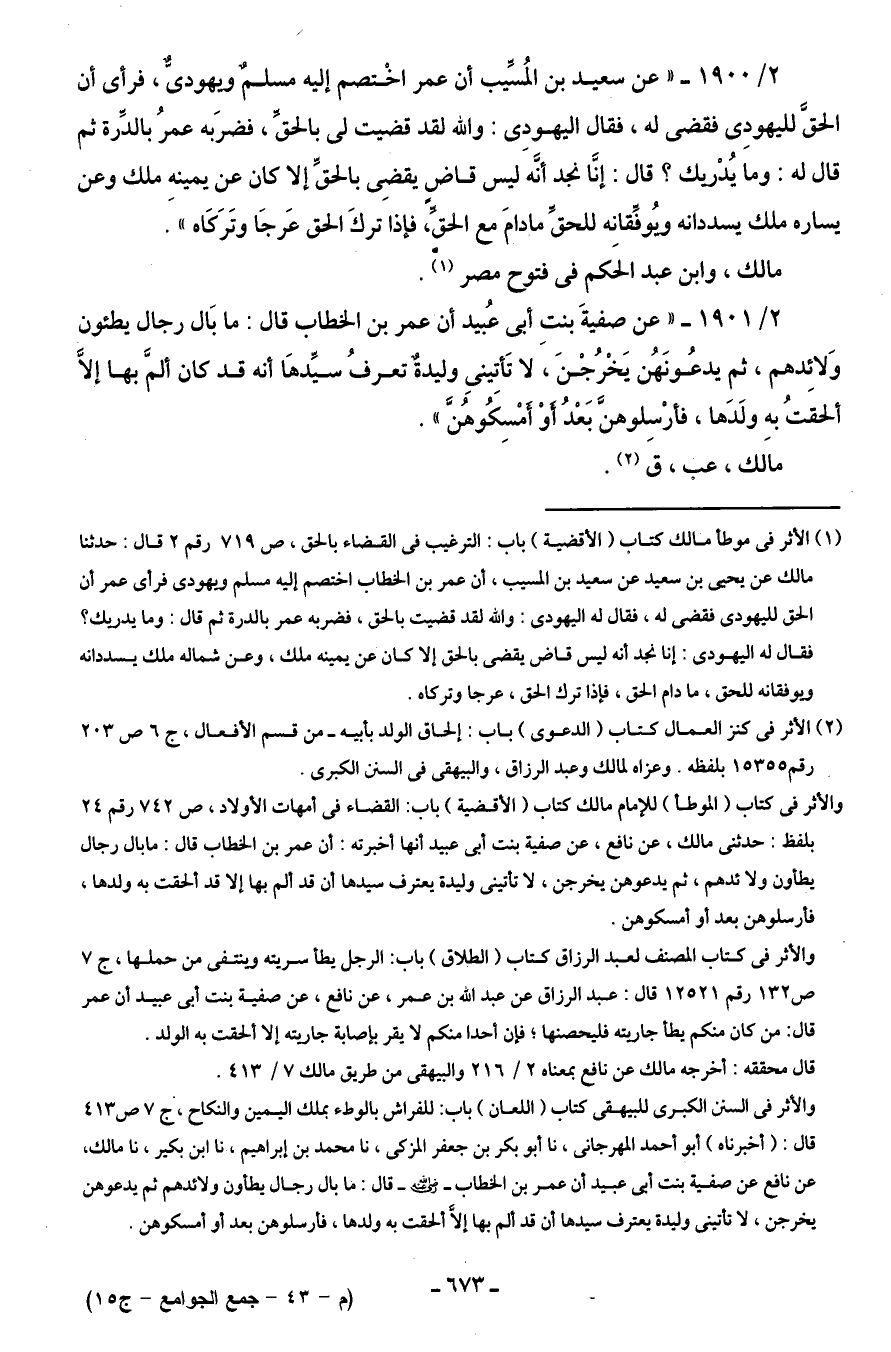 ٢/ ١٩٠٠ ـ « عن سعيـد بن المُسيِّب أن عمر اخْتصم إليه مسلـمٌ ويهودىٌّ ، فرأى أن
الحقَّ لليهودِى فقضى له ، فقال اليهـودِى : والله لقد قضيت لى بالحقِّ ، فضربَه عمرُ بالدِّرة ثم
قال له : وما يُدْريك ؟ قال : إنَّا نجد أنَّه ليس قـاضٍ يقضِى بالحقِّ إلا كان عن يمينهِ ملك وعن
يساره ملك يسددانه ويُوفِّقانِه للحقِّ مادامَ مع الحقِّ، فإذا تركَ الحق عَرجَا وتَركَاه » .
مالك ، وابن عبد الحكم فى فتوح مصر (١) .
٢/ ١٩٠١ ـ « عن صفيةَ بنتِ أبى عُبيد أن عمر بن الخطاب قال : ما بَال رجال يطئون
وَلائدهم ، ثم يدعـُونَهُن يَخْرُجْـنَ ، لا تَأتينِى وليدةٌ تعـرفُ سـيِّدهَا أنه قـد كان ألمَّ بهـا إلاَّ
ألحقتُ بهِ ولَدَها ، فأرْسِلوهنَّ بَعْدُ أوْ أَمْسِكُوهُنَّ » .
مالك ، عب ، ق (٢) .
(١) الأثر فى موطأ مـالك كتاب ( الأقضيـة ) باب : الترغيب فى القـضاء بالحق ، ص ٧١٩ رقم ٢ قـال : حدثنا
مالك عن يحيى بن سعيد عن سعيد بن المسيب ، أن عمر بن الخطاب اختصم إليه مسلم ويهودى فرأى عمر أن
الحق لليهودى فقضى له ، فقال له اليهودى : والله لقد قضيت بالحق ، فضربه عمر بالدرة ثم قال : وما يدريك؟
فقـال له اليهـودى : إنا نجد أنه ليس قـاض يقضى بالحق إلا كـان عن يمينه ملك ، وعـن شماله ملك يـسددانه
ويوفقانه للحق ، ما دام الحق ، فإذا ترك الحق ، عرجا وتركاه .
(٢) الأثر فى كنز العـمال كـتاب ( الدعـوى ) بـاب : إلحـاق الولد بأبيـه ـ مـن قـسم الأفـعـال ، ج ٦ ص ٢٠٣
رقم١٥٣٥٥ بلفظه . وعزاه لمالك وعبد الرزاق ، والبيهقى فى السنن الكبرى .
والأثر فى كتاب ( الموطـأ ) للإمام مالك كتاب ( الأقضية ) باب: القضـاء فى أمهات الأولاد ، ص ٧٤٢ رقم ٢٤
بلفظ : حدثنى مالك ، عن نافع ، عن صفية بنت أبى عبيد أنها أخبرته : أن عمر بن الخطاب قال : مابال رجال
يطأون ولا ئدهم ، ثم يدعوهن يخرجن ، لا تأتينى وليدة يعترف سيدها أن قد ألم بها إلا قد ألحقت به ولدها ،
فأرسلوهن بعد أو أمسكوهن .
والأثر فى كـتاب المصنف لعـبد الرزاق كـتاب ( الطلاق ) باب: الرجل يطأ سـريته وينتـفى من حملـها ، ج ٧
ص١٣٢ رقم ١٢٥٢١ قال : عـبد الرزاق عن عبد الله بن عـمر ، عن نافع ، عن صفية بنت أبى عبيـد أن عمر
قال: من كان منكم يطأ جاريته فليحصنها ؛ فإن أحدا منكم لا يقر بإصابة جاريته إلا ألحقت به الولد .
قال محققه : أخرجه مالك عن نافع بمعناه ٢ / ٢١٦ والبيهقى من طريق مالك ٧ / ٤١٣ .
والأثر فى السنن الكبـرى للبيـهقى كتاب ( اللعـان ) باب: للفراش بالوطء بملك اليـمين والنكاح ، ج ٧ ص٤١٣
قال : ( أخبرناه ) أبو أحمد المهرجانى ، نا أبو بكر بن جعفر المزكى ، نا محمد بن إبراهيم ، نا ابن بكير ، نا مالك،
عن نافع عن صفـية بنت أبى عبيد أن عمـر بن الخطاب ـ رضي الله عنه ـ قال : ما بال رجـال يطأون ولائدهم ثم يدعوهن
يخرجن ، لا تأتينى وليدة يعترف سيدها أن قد ألم بها إلاَّ ألحقت به ولدها ، فأرسلوهن بعد أو أمسكوهن .
ـ ٦٧٣ ـ
(م - ٤٣ - جمع الجوامع - ج١٥)